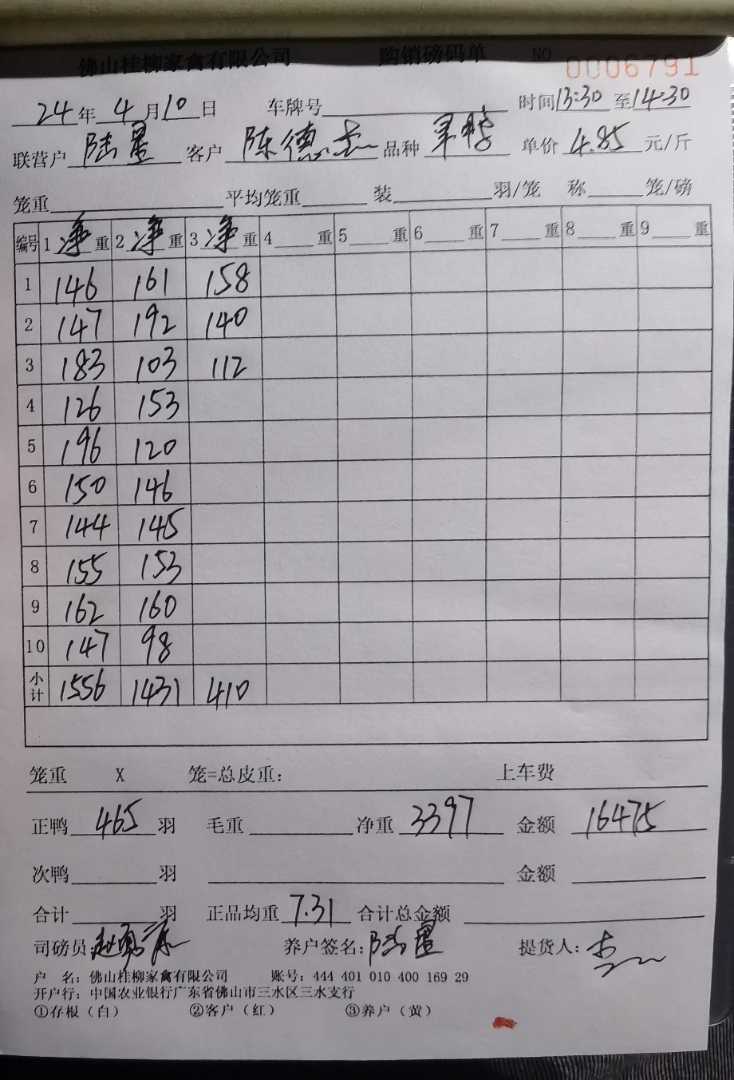 佛山桂柳家禽有限公司 购销磅码单 NO 0006791
24年4月10日 车牌号 时间13:30至14:30
联营户 陆墨 客户 陈德志 品种 单价4.85元/斤
笼重 平均笼重 装 羽/笼 称 笼/磅
编号 1净重 2净重 3净重 4 重 5 重 6 重 7 重 8 重 9 重
1 146 161 158
2 147 192 140
3 183 103 112
4 126 153
5 196 120
6 150 146
7 144 145
8 155 153
9 162 160
10 147 98
小计 1556 1431 410
笼重 X 笼=总皮重: 上车费
正鸭 465 羽 毛重 净重 3397 金额 16475
次鸭 羽 金额
合计 羽 正品均重 7.31 合计总金额
司磅员 养户签名: 陆墨 提货人:
户 名: 佛山桂柳家禽有限公司 账号: 444 401 010 400 169 29
开户行: 中国农业银行广东省佛山市三水区三水支行
①存根（白） ②客户（红） ③养户（黄）